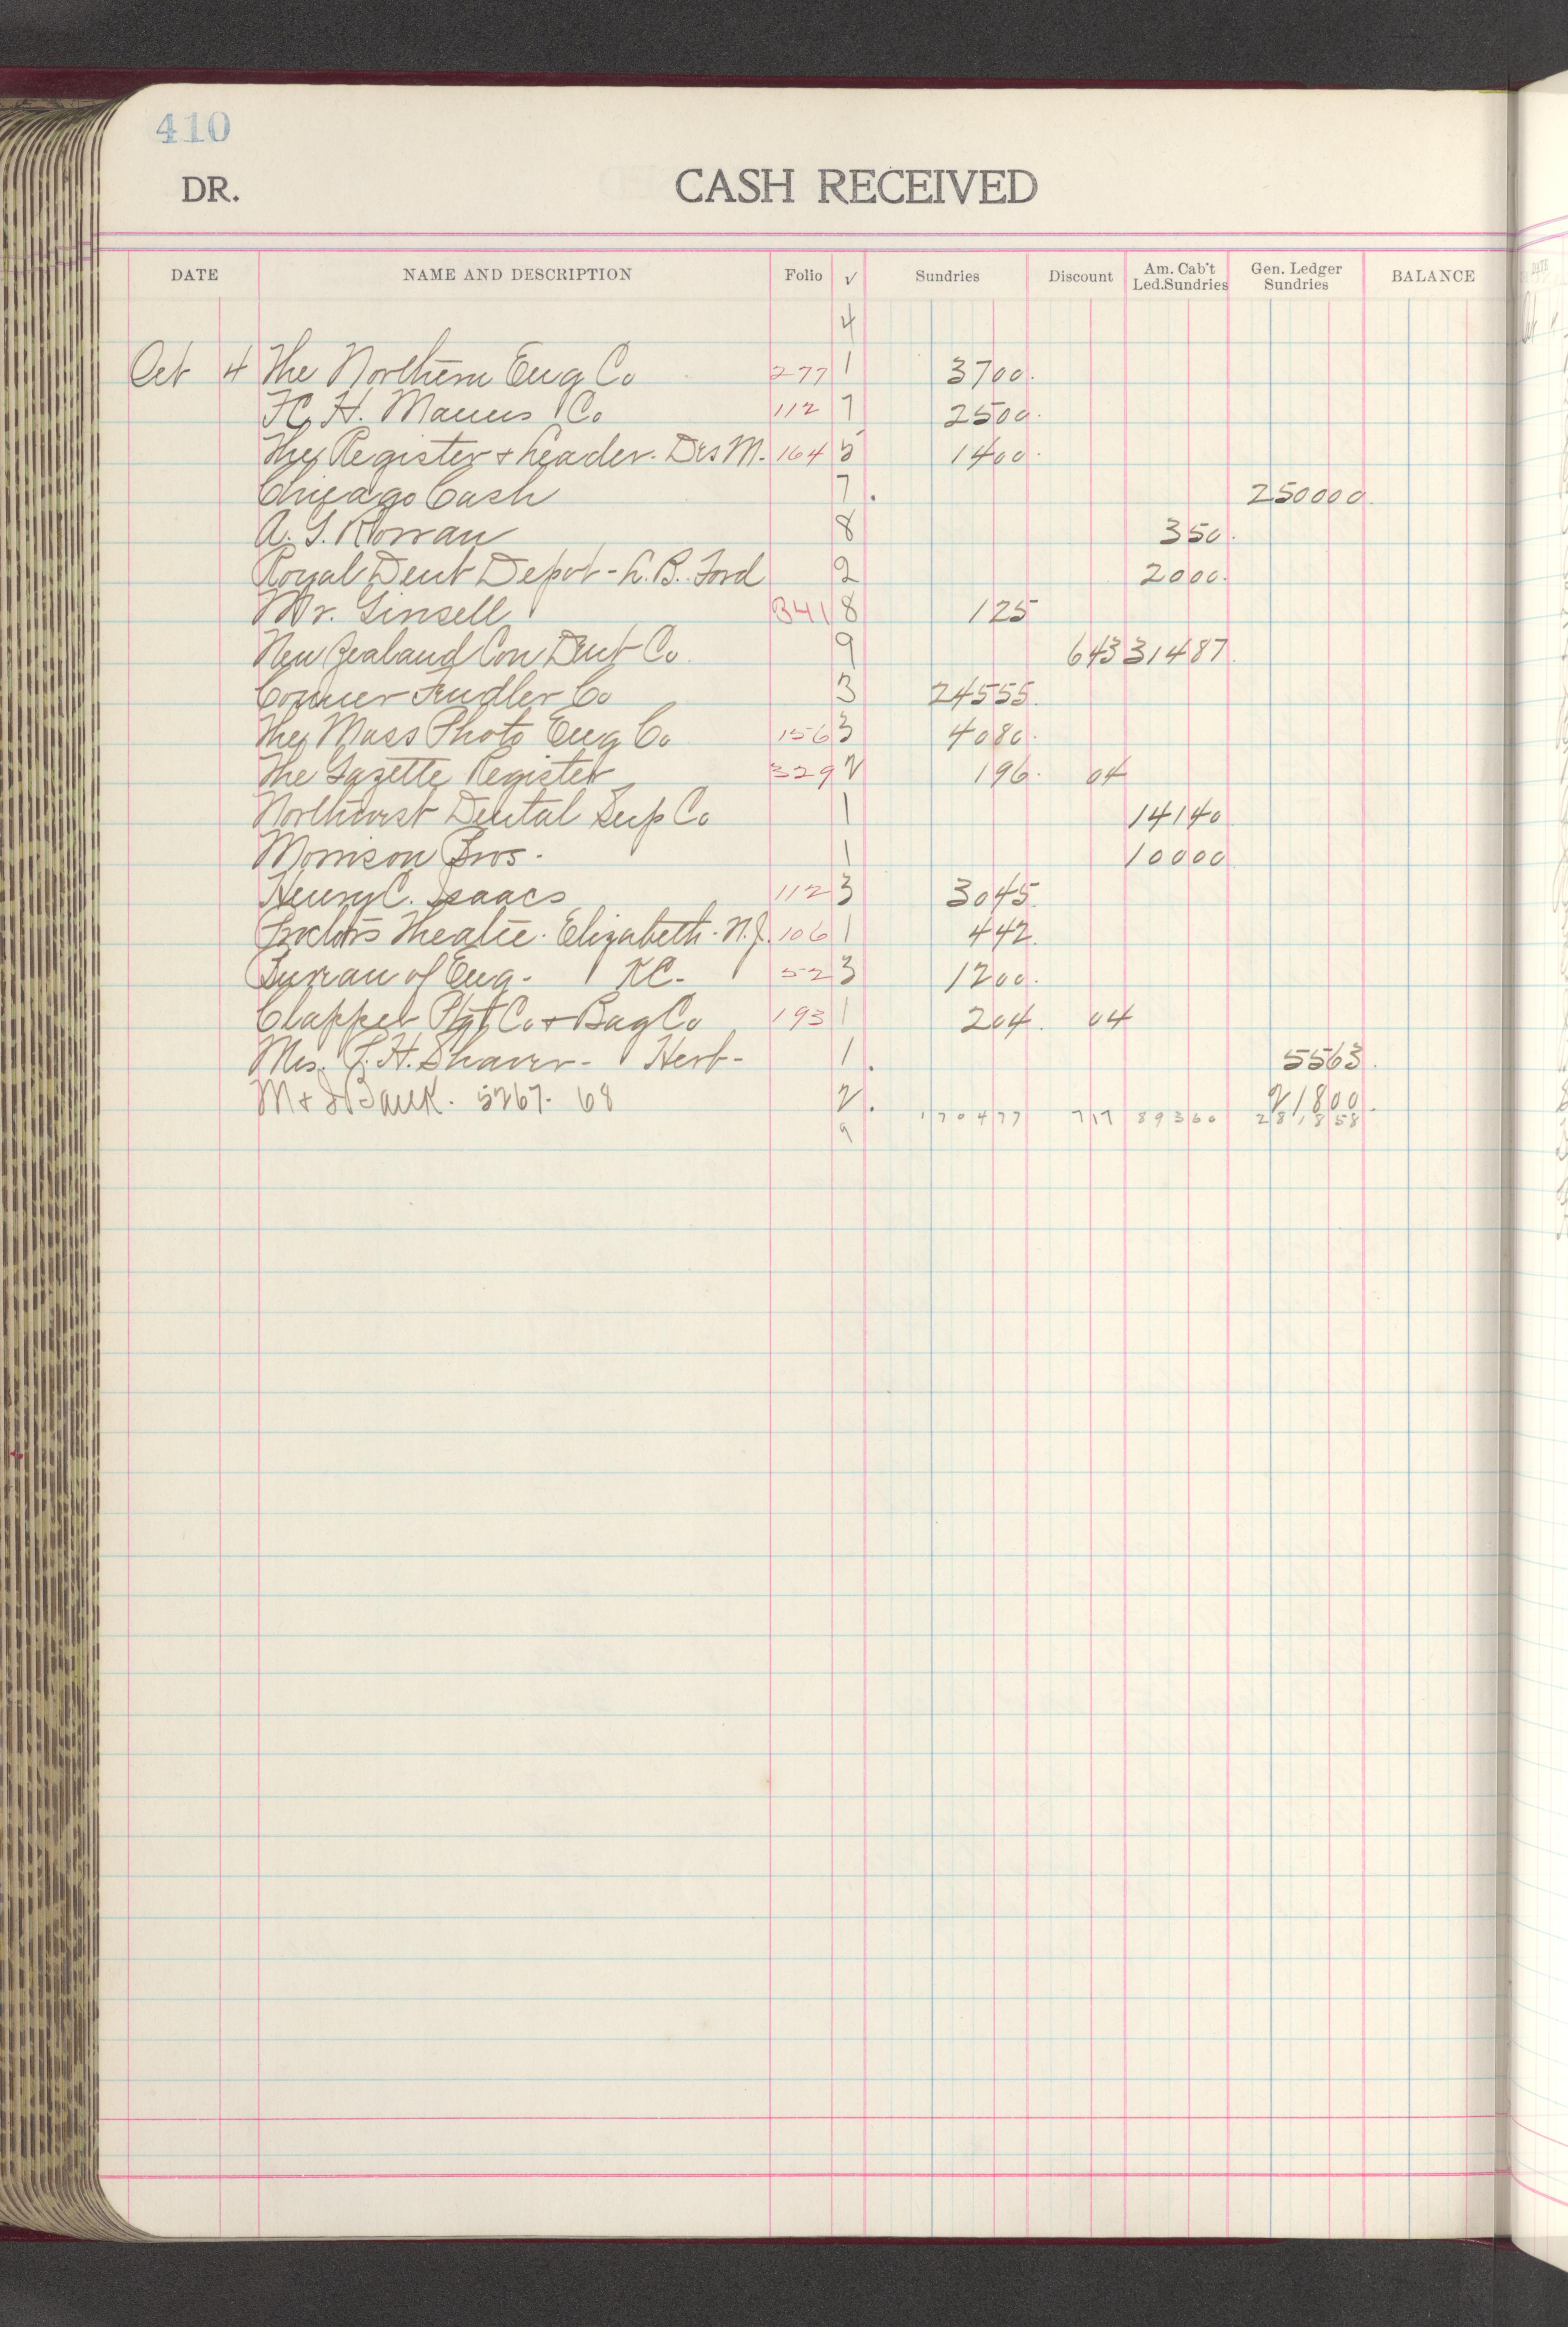 410
DR. CASH RECEIVED
DATE NAME AND DESCRIPTION Folio √ Sundries Discount Am. Cab't Led.Sundries Gen. Ledger Sundries BALANCE
4
Oct 4 The Northern Eng Co 277 1 3700.
H. Co 112 7 2500.
The Register & Leader. Des M. 164 5 1400.
Chicago Cash 7. 250000.
A. S. 8 350.
Royal Dent Depot - L. B. Ford 2 2000.
Mr. Ginsell 341 8 125
New Zealand Con Dent Co. 9 643 31487.
Conner Fendler Co 3 24555.
The Mass Photo Eng Co 156 3 4080.
The Gazette Register 329 2 196. 04
Northwest Dental Sup Co 1 14140
Morrison Bros. 1 10000
Henry C. Isaacs 112 3 3045.
Proctors Theatre. Elizabeth. N.J. 106 1 442.
Bureau of Eng. KC. 52 3 1200.
Clapper Co & Bag Co 193 1 204. 04
Mrs. H. Shaver - Herb - 1. 5563.
M & J Bank. 5267. 68 2. 21800.
9 170477 717 89360 281858